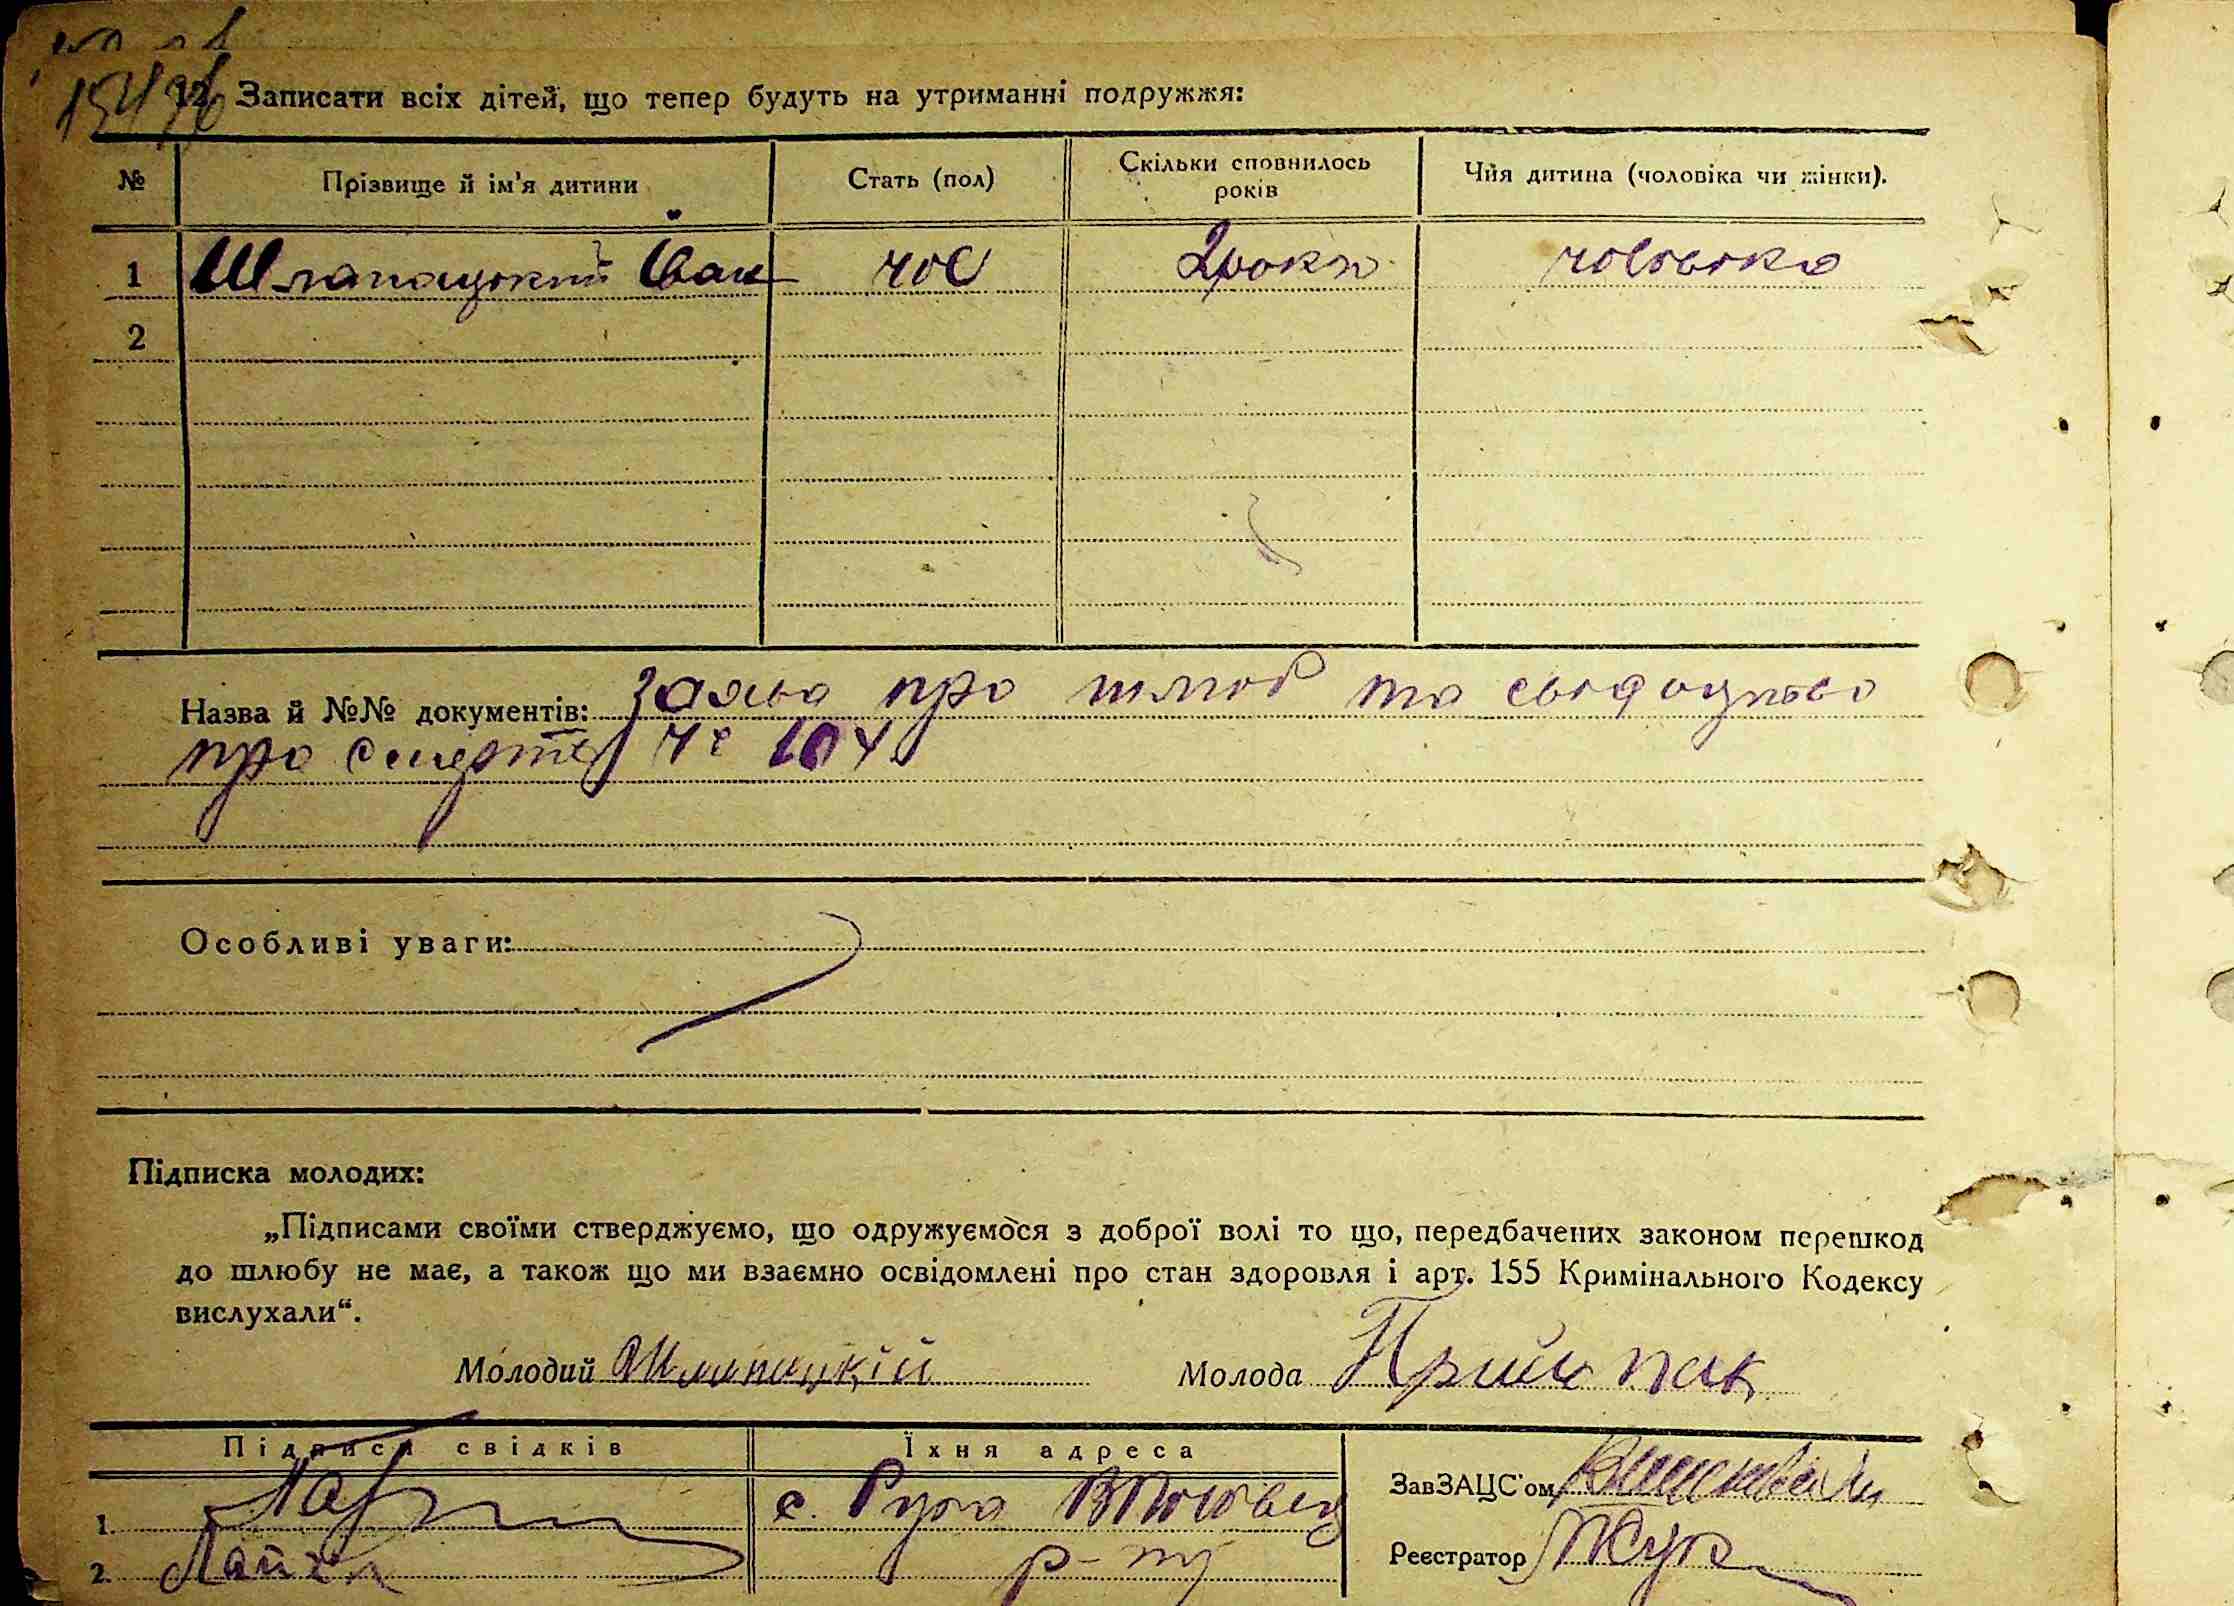 12. Записати всіх дітей, що тепер будуть на утриманні подружжя:
№ Прізвище й ім'я дитини Стать (пол) Скільки сповнилось років Чия дитина (чоловіка чи жінки).
1 Шлапацький Іван чол 2 роки чоловіка
2
Назва й №№ документів: Заява про шлюб та свідоцтво
про смерть № 104
Особливі уваги:
Підписка молодих:
„Підписами своїми стверджуємо, що одружуємося з доброї волі то що, передбачених законом перешкод
до шлюбу не має, а також що ми взаємно освідомлені про стан здоровля і арт. 155 Кримінального Кодексу
вислухали“.
Молодий Шлапацкій Молода Приймак
Підписи свідків Їхня адреса
ЗавЗАЦС'ом
1. с. Руда
Реєстратор Жук
2. р-ну